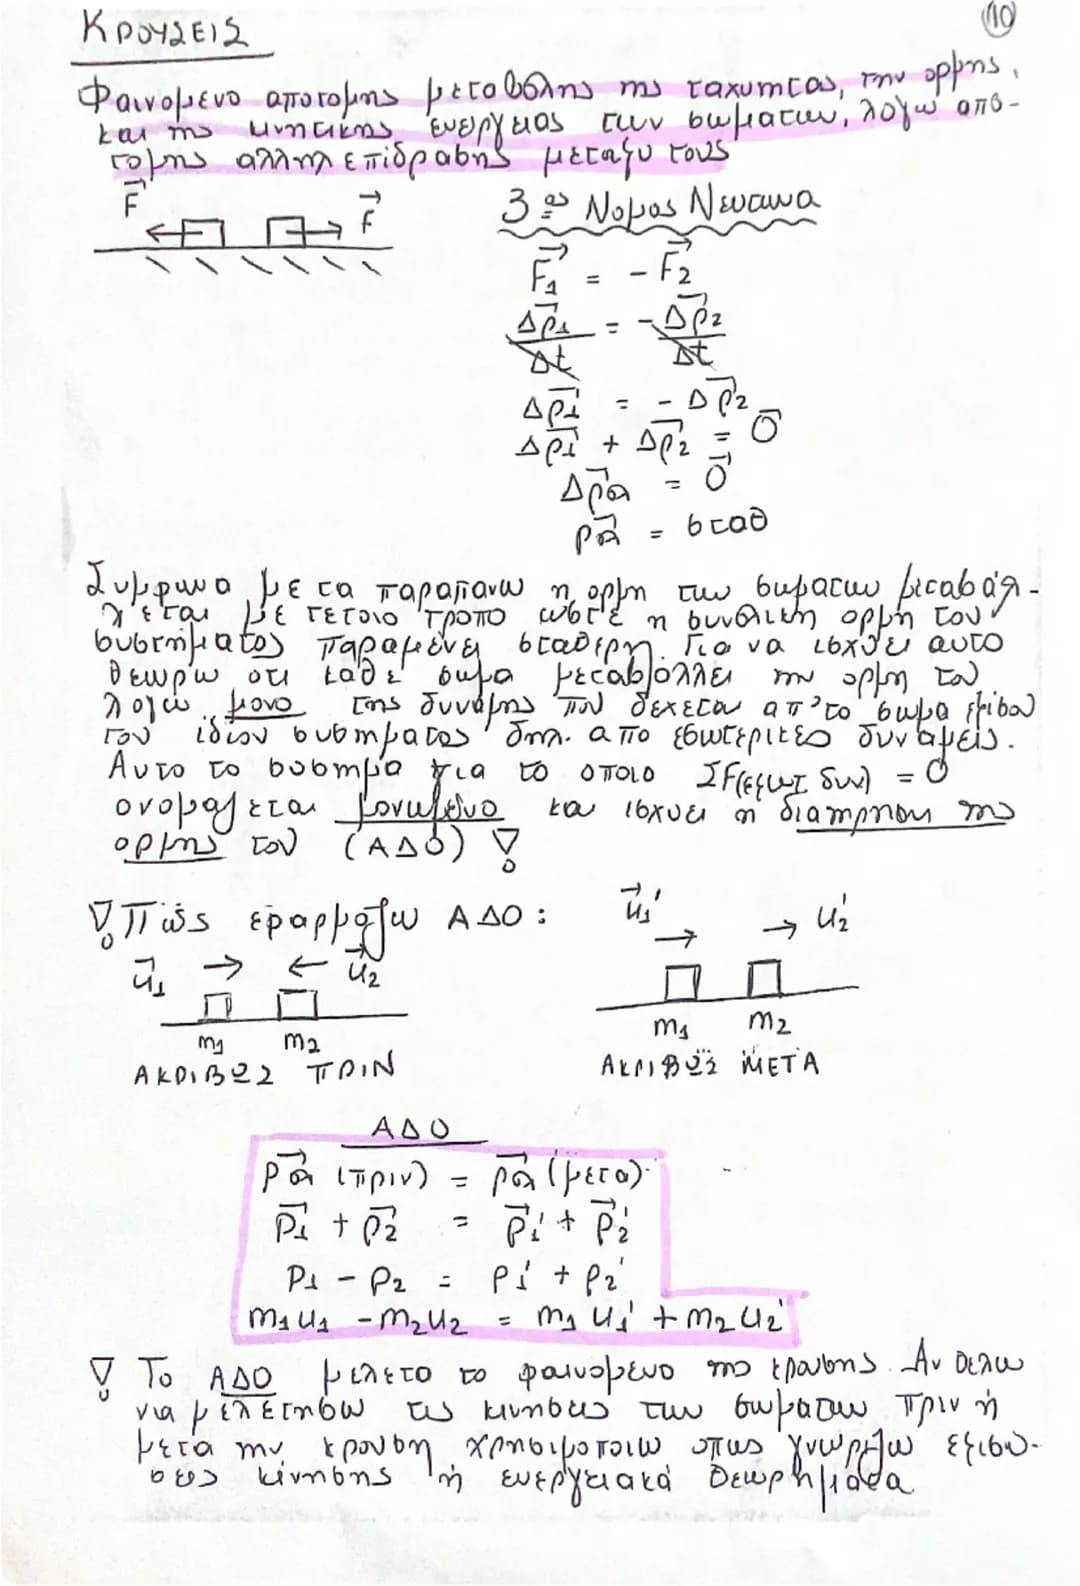 ΚΡΟΥΣΕΙΣ
10
Φαινομενο αποτομης μεταβολης της ταχυτητας, την ορμης,
και της κινητικης ενεργειας των σωματων, λογω απο-
τομης αλληλεπιδρασης μεταξυ τους
F F
3ος Νομος Νευτωνα
F1 = - F2
Δp1 = - Δp2
Δt Δt
Δp1 = - Δp2
Δp1 + Δp2 = 0
Δpολ = 0
pολ = σταθ
Συμφωνα με τα παραπανω η ορμη των σωματων μεταβάλ-
λεται με τετοιο τροπο ωστε η συνολικη ορμη του
συστήματος παραμένει σταθερη. Για να ισχύει αυτο
θεωρω οτι καθε σωμα μεταβαλλει την ορμη του
λογω μονο της δυναμης που δεχεται απ'το σωμα
του ιδιου συστηματος δηλ. απο εσωτερικες δυναμεις.
Αυτο το συστημα για το οποιο ΣF(εξωτ δυν) = 0
ονομαζεται μονωμενο και ισχυει η διατηρηση της
ορμης του (ΑΔΟ) !
! Πως εφαρμοζω ΑΔΟ :
u1 u2 u1' u2'
m1 m2 m1 m2
ΑΚΡΙΒΩΣ ΠΡΙΝ ΑΚΡΙΒΩΣ ΜΕΤΑ
ΑΔΟ
pολ (πριν) = pολ (μετα)
p1 + p2 = p1' + p2'
p1 - p2 = p1' + p2'
m1u1 - m2u2 = m1u1' + m2u2'
! Το ΑΔΟ μελετο το φαινομενο της κρουσης. Αν θελω
να μελετησω τις κινησεις των σωματων πριν ή
μετα την κρουση χρησιμοποιω οπως γνωριζω εξισω-
σεις κίνησης ή ενεργειακά θεωρήματα